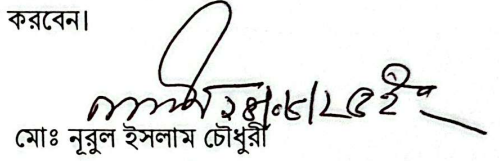 করবেন।
মোঃ নূরুল ইসলাম চৌধুরী